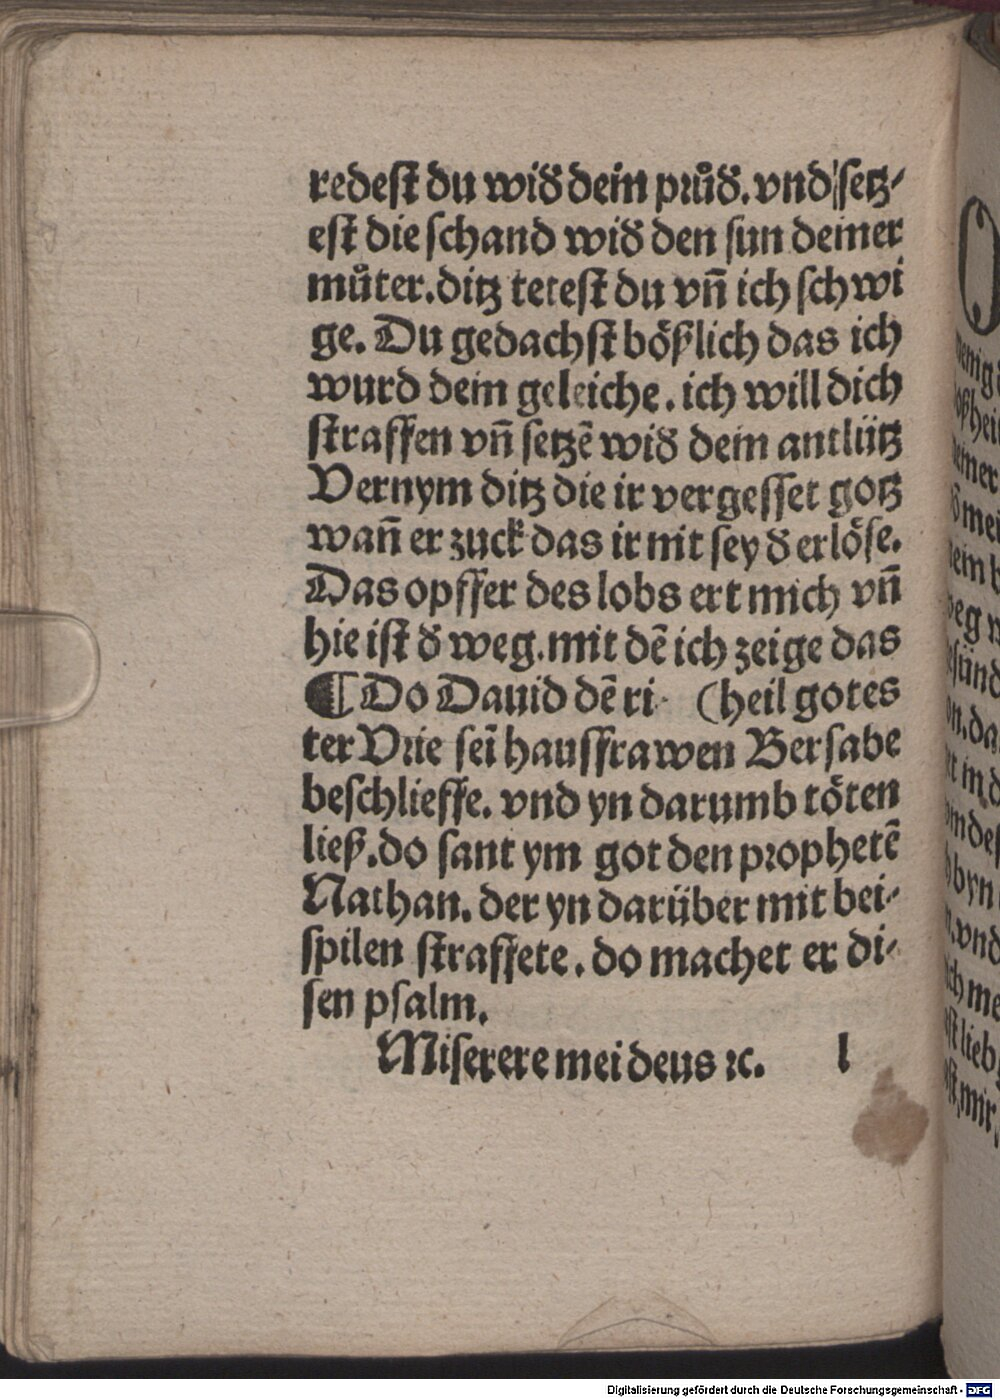 redest du wid̕ dein pruͦd̕. vnd setz⸗
est die schand wid̕ den sun deiner
muͦter. ditz tetest du vñ ich schwi
ge. Du gedachst boͤßlich das ich
wurd dein geleiche. ich will dich
straffen vñ setzē wid̕ dein antlütz
Vernym ditz die ir vergesset gotz
wañ er zuck das ir nit sey d̕ erloͤse.
Das opffer des lobs ert mich vñ
hie ist d̕ weg. mit dē ich zeige das
¶ Do Dauid dē ri (heil gotes
ter Vrie sei̅ haussfrawen Bersabe
beschlieffe. vnd yn darumb toͤten
ließ. do sant ym got den prophetē
Nathan. der yn darüber mit bei⸗
spilen straffete. do machet er di⸗
sen psalm.
Miserere mei deus ꝛc. l
Digitalisierung gefördert durch die Deutsche Forschungsgemeinschaft - DFG